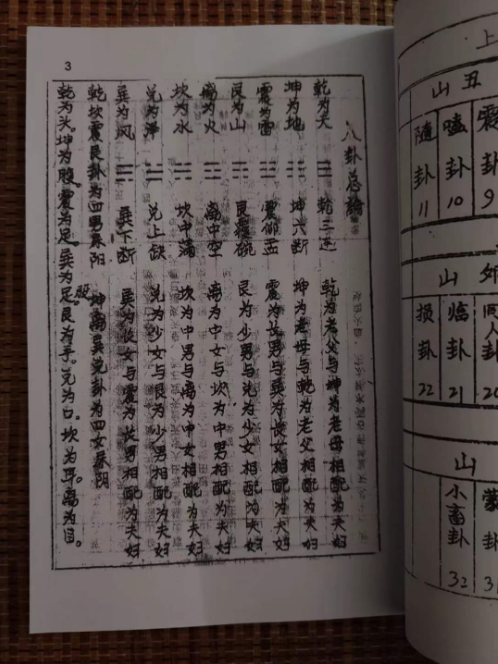 3
八卦总論
乾为天 ☰ 乾三连 乾为老父与坤为老母相配为夫妇
坤为地 ☷ 坤六断 坤为老母与乾为老父相配为夫妇
震为雷 ☳ 震仰盂 震为长男与巽为长女相配为夫妇
艮为山 ☶ 艮覆碗 艮为少男与兑为少女相配为夫妇
离为火 ☲ 离中空 离为中女与坎为中男相配为夫妇
坎为水 ☵ 坎中满 坎为中男与离为中女相配为夫妇
兑为泽 ☱ 兑上缺 兑为少女与艮为少男相配为夫妇
巽为风 ☴ 巽下断 巽为长女与震为长男相配为夫妇
乾坎震艮卦为四男属阳 坤离巽兑卦为四女属阴
乾为头。坤为腹。震为足。巽为足艮为手。兑为口。坎为耳。离为目。
股
上
山丑
震卦9
嗑卦10
隨卦11
山卯
同人卦20
临卦21
损卦22
山
蒙卦3
小畜卦32